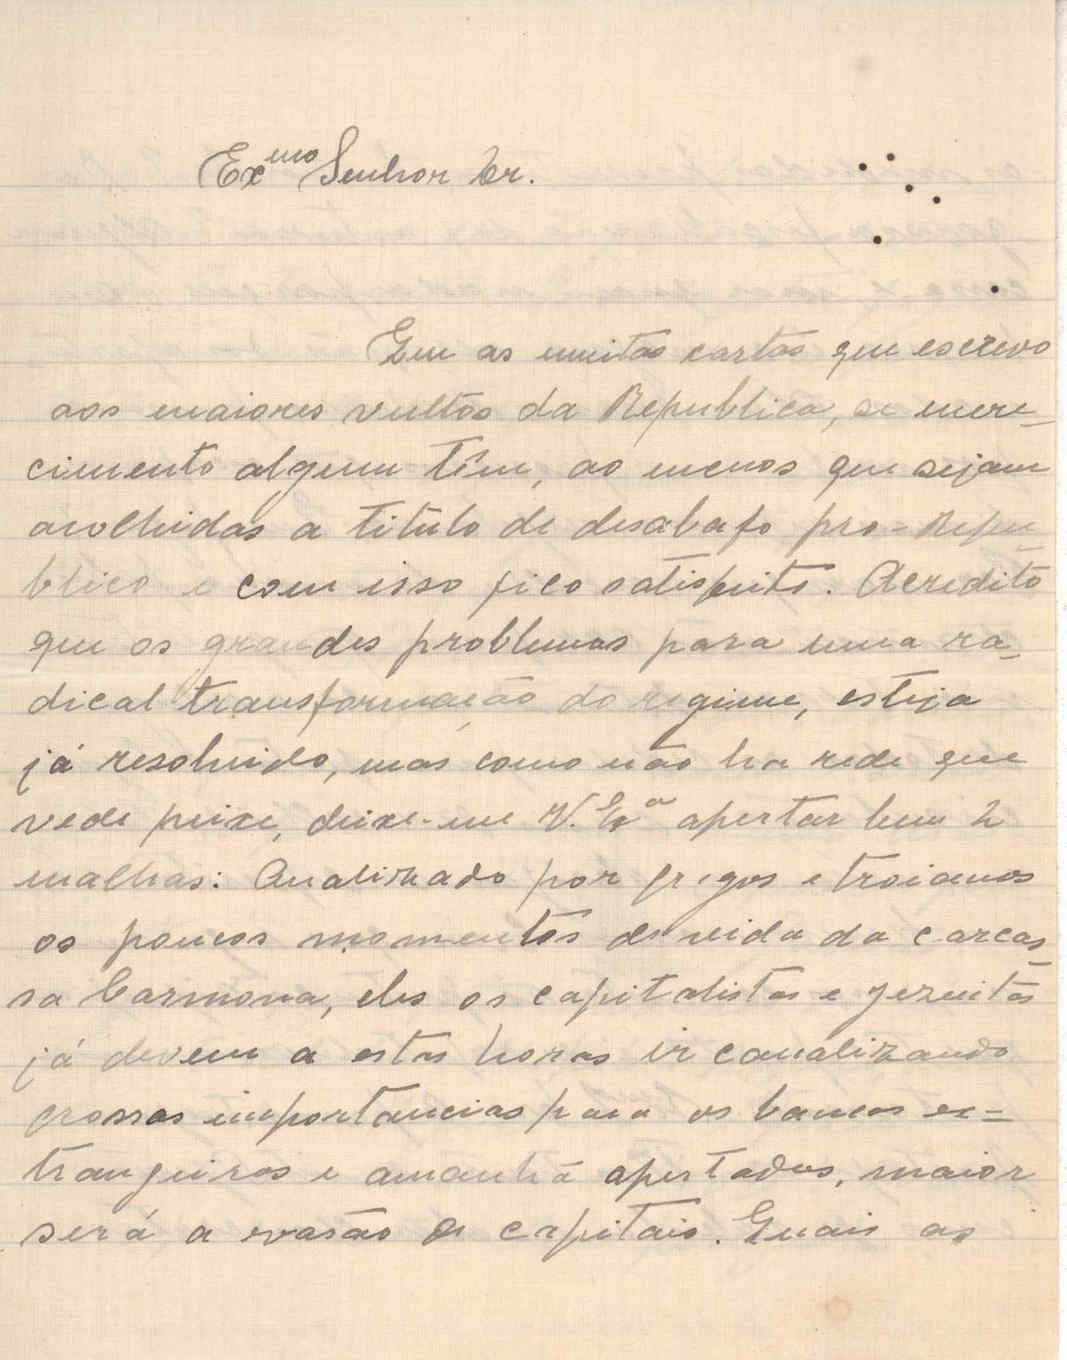 Exmo Senhor Dr.
Que as muitas cartas que escrevo
aos maiores vultos da Republica, se mere-
cimento algum têm, ao menos que sejam
acolhidas a titulo de desabafo pro-Repu
blico e com isso fico satisfeito. Acredito
que os grandes problemas para uma ra-
dical transformação do regime, esteja
já resolvido, mas como não ha rede que
vede peixe, deixe-me V. Exa apertar bem 2
malhas: Analizado por gregos e troianos
os poucos momentos de vida da carcas-
sa Carmona, eles os capitalistas e jezuitas
já devem a estas horas ir canalizando
grossas importancias para os bancos es-
trangeiros e amanhã apertados, maior
será a evasão de capitais. Quais as